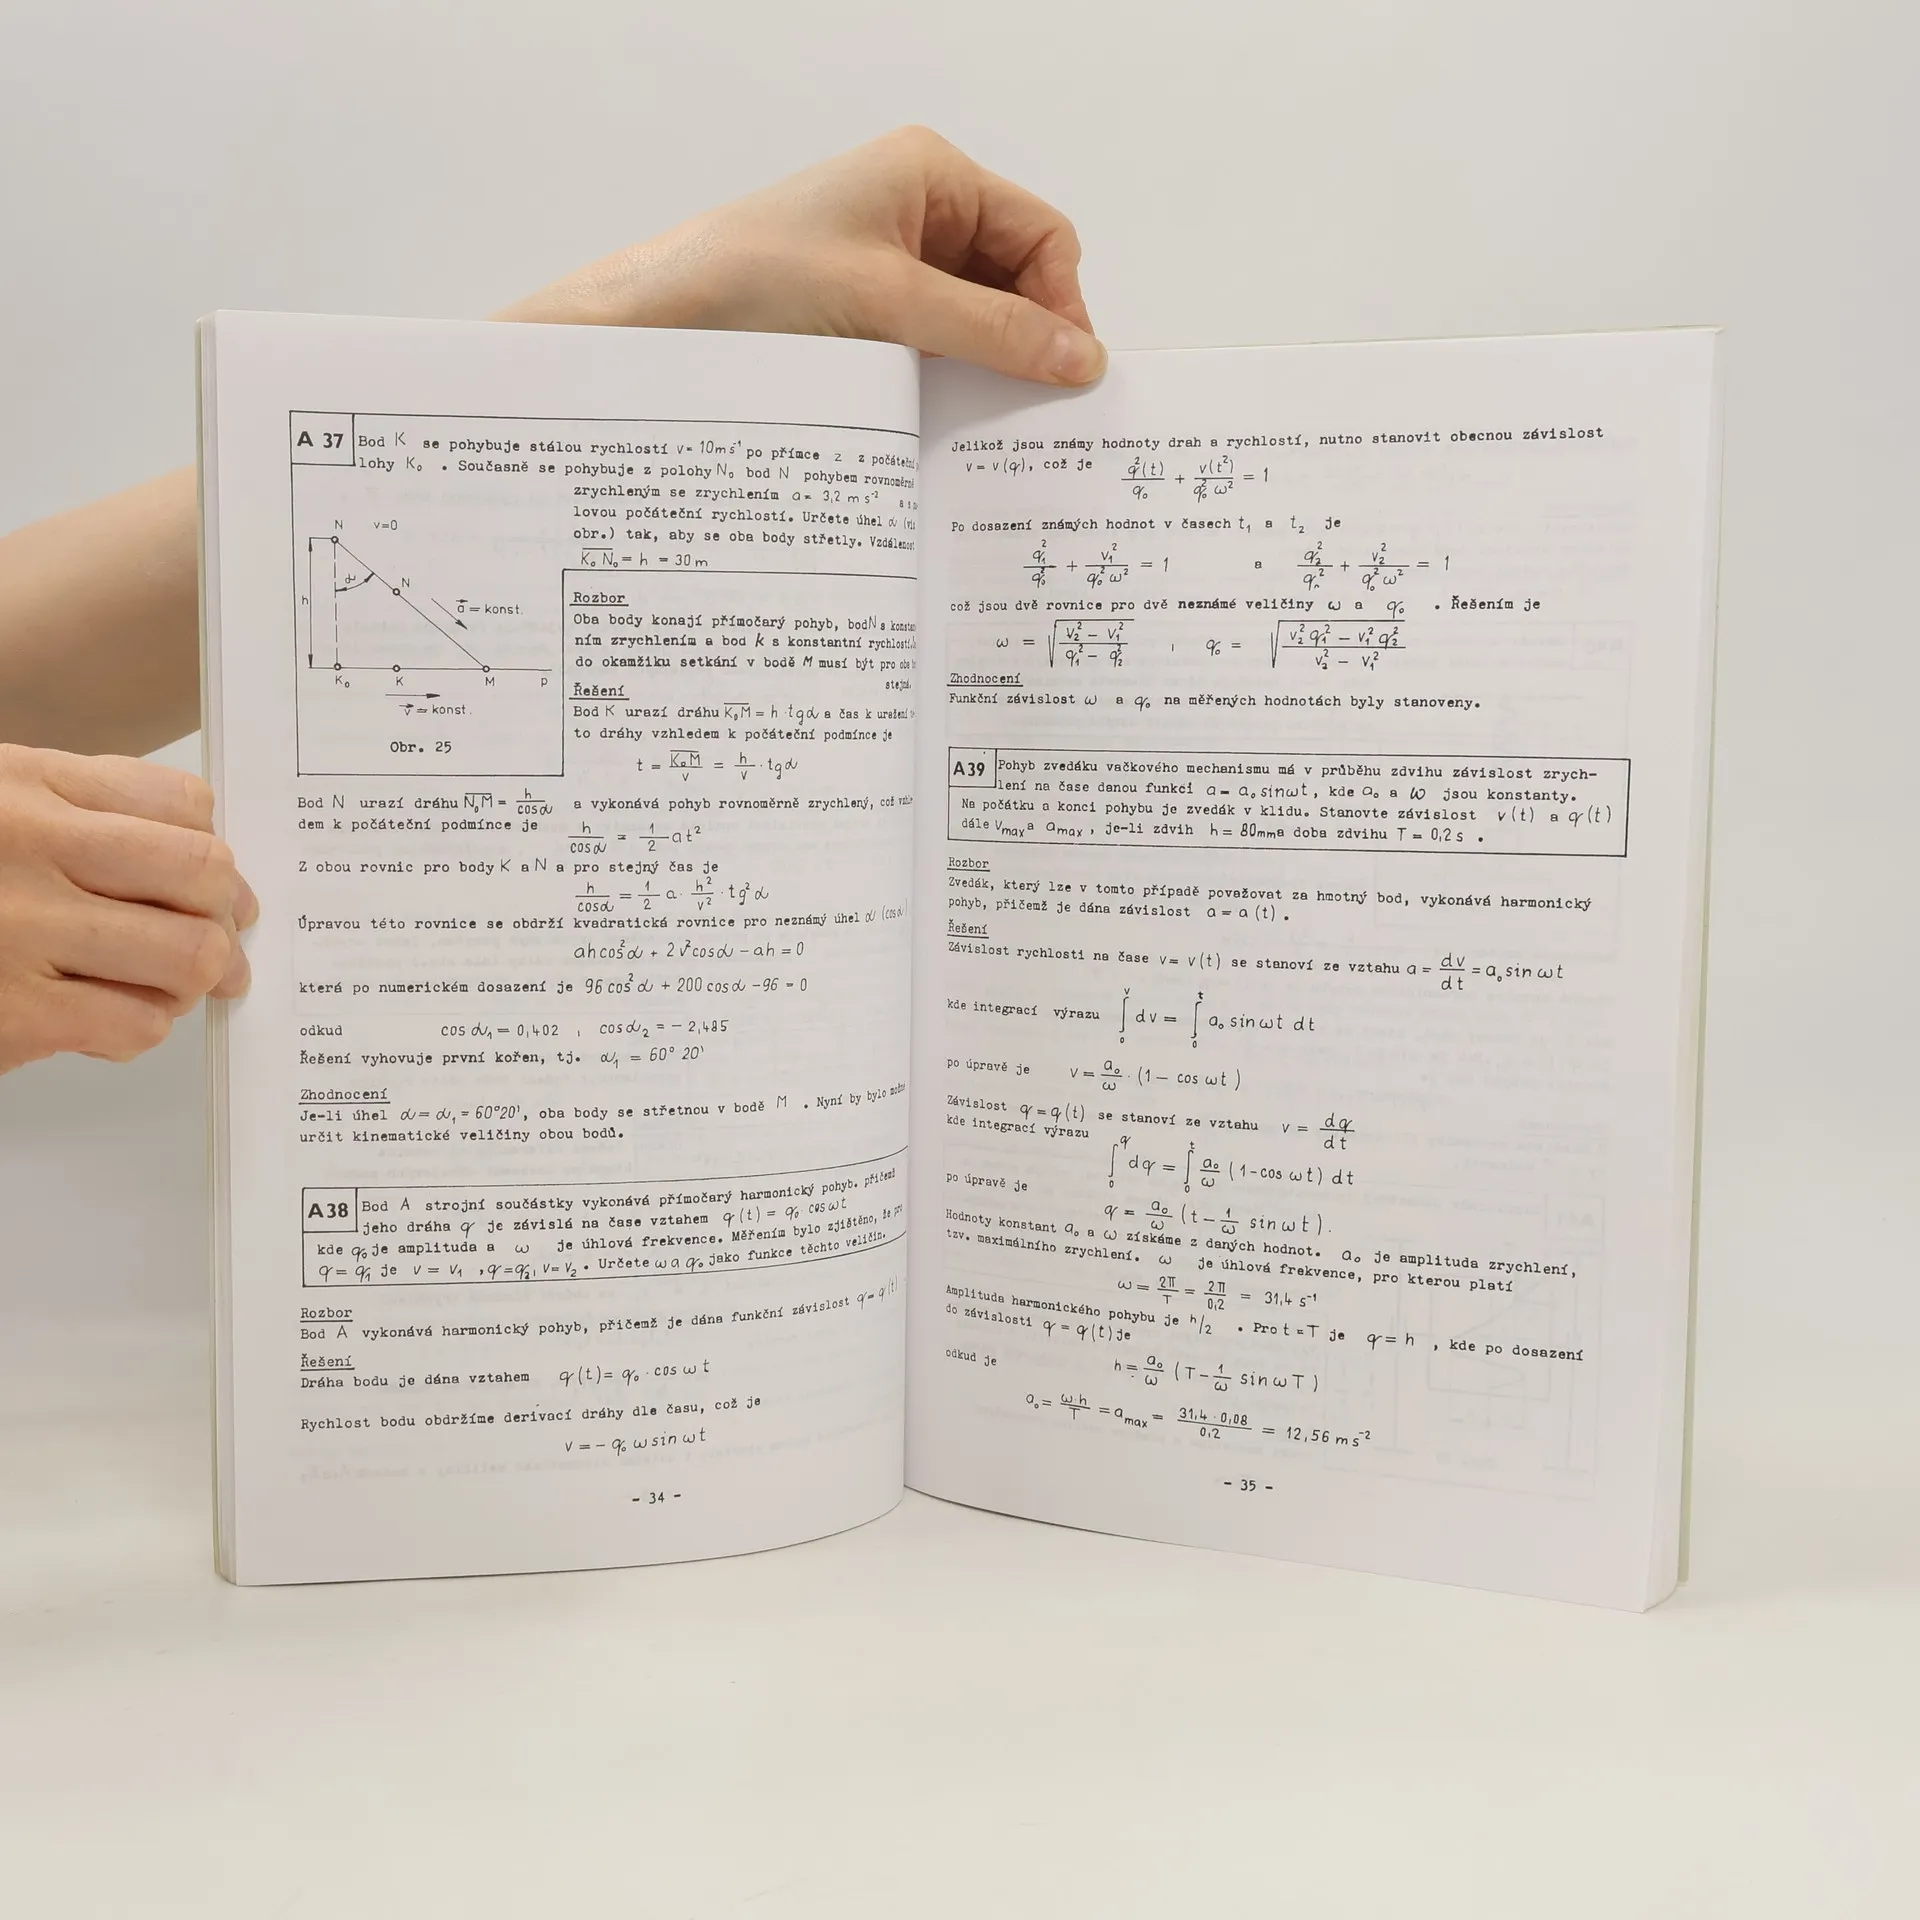 A 37 Bod K se pohybuje stálou rychlostí v= 10ms⁻¹ po přímce z z počáteční
lohy K₀ . Současně se pohybuje z polohy N₀ bod N pohybem rovnoměrně
zrychleným se zrychlením a= 3,2 m s⁻² a s
lovou počáteční rychlostí. Určete úhel α
obr.) tak, aby se oba body střetly. Vzdálenost
K₀ N₀ = h = 30 m
N v=0
α
N
h
a = konst.
K₀ K M p
v = konst.
Obr. 25
Rozbor
Oba body konají přímočarý pohyb, bod N s
ním zrychlením a bod k s konstantní rychlostí.
do okamžiku setkání v bodě M musí být pro oba
stejná.
Řešení
Bod K urazí dráhu K₀M = h · tgα a čas k uražení
to dráhy vzhledem k počáteční podmínce je
t = K₀M/v = h/v · tgα
Bod N urazí dráhu N₀M = h/cosα a vykonává pohyb rovnoměrně zrychlený, což
dem k počáteční podmínce je h/cosα = 1/2 at²
Z obou rovnic pro body K a N a pro stejný čas je
h/cosα = 1/2 a · h²/v² · tg²α
Úpravou této rovnice se obdrží kvadratická rovnice pro neznámý úhel α (cosα)
ahcos²α + 2v²cosα - ah = 0
která po numerickém dosazení je 96 cos²α + 200 cosα -96 = 0
odkud cos α₁ = 0,402 , cosα₂ = - 2,485
Řešení vyhovuje první kořen, tj. α₁ = 60° 20'
Zhodnocení
Je-li úhel α = α₁ = 60°20', oba body se střetnou v bodě M . Nyní by bylo možné
určit kinematické veličiny obou bodů.
A38 Bod A strojní součástky vykonává přímočarý harmonický pohyb. přičemž
jeho dráha q je závislá na čase vztahem q(t) = q₀ · cos ωt
kde q₀ je amplituda a ω je úhlová frekvence. Měřením bylo zjištěno, že pro
q = q₁ je v = v₁ , q=q₂, v= v₂ . Určete ω a q₀ jako funkce těchto veličin.
Rozbor
Bod A vykonává harmonický pohyb, přičemž je dána funkční závislost q= q(t)
Řešení
Dráha bodu je dána vztahem q(t)= q₀ · cos ωt
Rychlost bodu obdržíme derivací dráhy dle času, což je
v = - q₀ ω sin ωt
- 34 -
Jelikož jsou známy hodnoty drah a rychlostí, nutno stanovit obecnou závislost
v = v(q), což je q²(t)/q₀ + v(t²)/q₀² ω² = 1
Po dosazení známých hodnot v časech t₁ a t₂ je
q₁²/q₀² + v₁²/q₀² ω² = 1 a q₂²/q² + v₂²/q₀² ω² = 1
což jsou dvě rovnice pro dvě neznámé veličiny ω a q₀ . Řešením je
ω = √((v₂² - v₁²)/(q₁² - q₂²)) , q₀ = √((v₂² q₁² - v₁² q₂²)/(v₂² - v₁²))
Zhodnocení
Funkční závislost ω a q₀ na měřených hodnotách byly stanoveny.
A39 Pohyb zvedáku vačkového mechanismu má v průběhu zdvihu závislost zrych-
lení na čase danou funkcí a = a₀ sinωt, kde a₀ a ω jsou konstanty.
Na počátku a konci pohybu je zvedák v klidu. Stanovte závislost v(t) a q(t)
dále vmax a amax , je-li zdvih h = 80mm a doba zdvihu T = 0,2 s .
Rozbor
Zvedák, který lze v tomto případě považovat za hmotný bod, vykonává harmonický
pohyb, přičemž je dána závislost a = a(t) .
Řešení
Závislost rychlosti na čase v= v(t) se stanoví ze vztahu a = dv/dt = a₀ sin ωt
kde integrací výrazu ∫₀ᵛ dv = ∫₀ᵗ a₀ sin ωt dt
po úpravě je v = a₀/ω · (1 - cos ωt)
Závislost q = q(t) se stanoví ze vztahu v = dq/dt
kde integrací výrazu
∫₀^q dq = ∫₀ᵗ a₀/ω (1-cos ωt) dt
po úpravě je
q = a₀/ω (t - 1/ω sin ωt).
Hodnoty konstant a₀ a ω získáme z daných hodnot. a₀ je amplituda zrychlení,
tzv. maximálního zrychlení. ω je úhlová frekvence, pro kterou platí
ω = 2π/T = 2π/0,2 = 31,4 s⁻¹
Amplituda harmonického pohybu je h/2 . Pro t = T je q = h , kde po dosazení
do závislosti q = q(t) je
h = a₀/ω (T - 1/ω sin ωT)
odkud je
a₀ = ω·h/T = amax = 31,4 · 0,08/0,2 = 12,56 m s⁻²
- 35 -